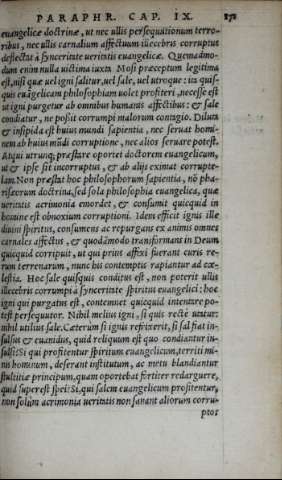 PARAPHR. CAP. IX.
euangelicæ doctrinæ, ut nec ullis persequutionum terro-
ribus, nec ullis carnalium affectuum illecebris corruptus
deflectat à synceritate ueritatis euangelicæ. Quemadmo-
dum enim nulla uictima iuxta Mosi præceptum legitima
est, nisi quæ uel igni salitur, uel sale, uel utroque: ita quis-
quis euāgelicam philosophiam uolet profiteri, necesse est
ut igni purgetur ab omnibus humanis affectibus: & sale
condiatur, ne possit corrumpi malorum contagio. Diluta
& insipida est huius mundi sapientia, nec seruat homi-
nem ab huius mūdi corruptione, nec alios seruare potest.
Atqui utrunq; præstare oportet doctorem euangelicum,
ut & ipse sit incorruptus, & ab alijs eximat corrupte-
lam. Non præstat hoc philosophorum sapientia, nō pha-
risæorum doctrina, sed sola philosophia euangelica, quæ
ueritatis acrimonia emordet, & consumit quicquid in
homine est obnoxium corruptioni. Idem efficit ignis ille
diuini spiritus, consumens ac repurgans ex animis omnes
carnales affectus, & quodāmodo transformans in Deum
quicquid corripuit, ut qui prius affixi fuerant curis re-
rum terrenarum, nunc his contemptis rapiantur ad cœ-
lestia. Hoc sale quisquis conditus est, non poterit ullis
illecebris corrumpi à synceritate spiritus euangelici: hoc
igni qui purgatus est, contemnet quicquid intentare po-
test persequutor. Nihil melius igni, si quis rectè utatur:
nihil utilius sale. Cæterum si ignis refrixerit, si sal fiat in-
sulsus & euanidus, quid reliquum est quo condiantur in-
sulsi? Si qui profitentur spiritum euangelicum, territi mi-
nis hominum, deserant institutum, ac metu blandiantur
stultitiæ principum, quam oportebat fortiter redarguere,
quid superest spei? Si, qui salem euangelicum profitentur,
non solùm acrimonia ueritatis non sanant aliorum corru-
ptos